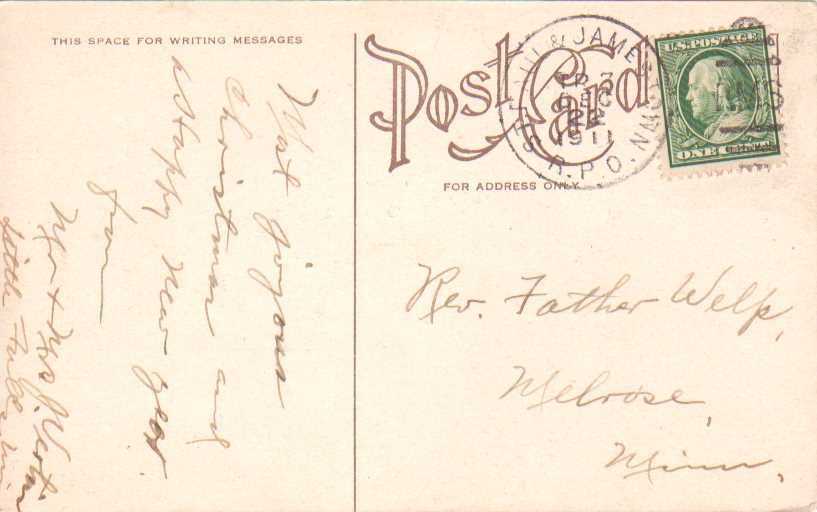 THIS SPACE FOR WRITING MESSAGES
Post Card
FOR ADDRESS ONLY
U.S. POSTAGE
ONE CENT
& JAMESTOWN
R.P.O.
TR 3
DEC
22
1911
Most joyous
Christmas and
Happy New year
from
Mr & Mrs J.
Little Falls Min
Rev. Father Welp,
Melrose,
Minn,